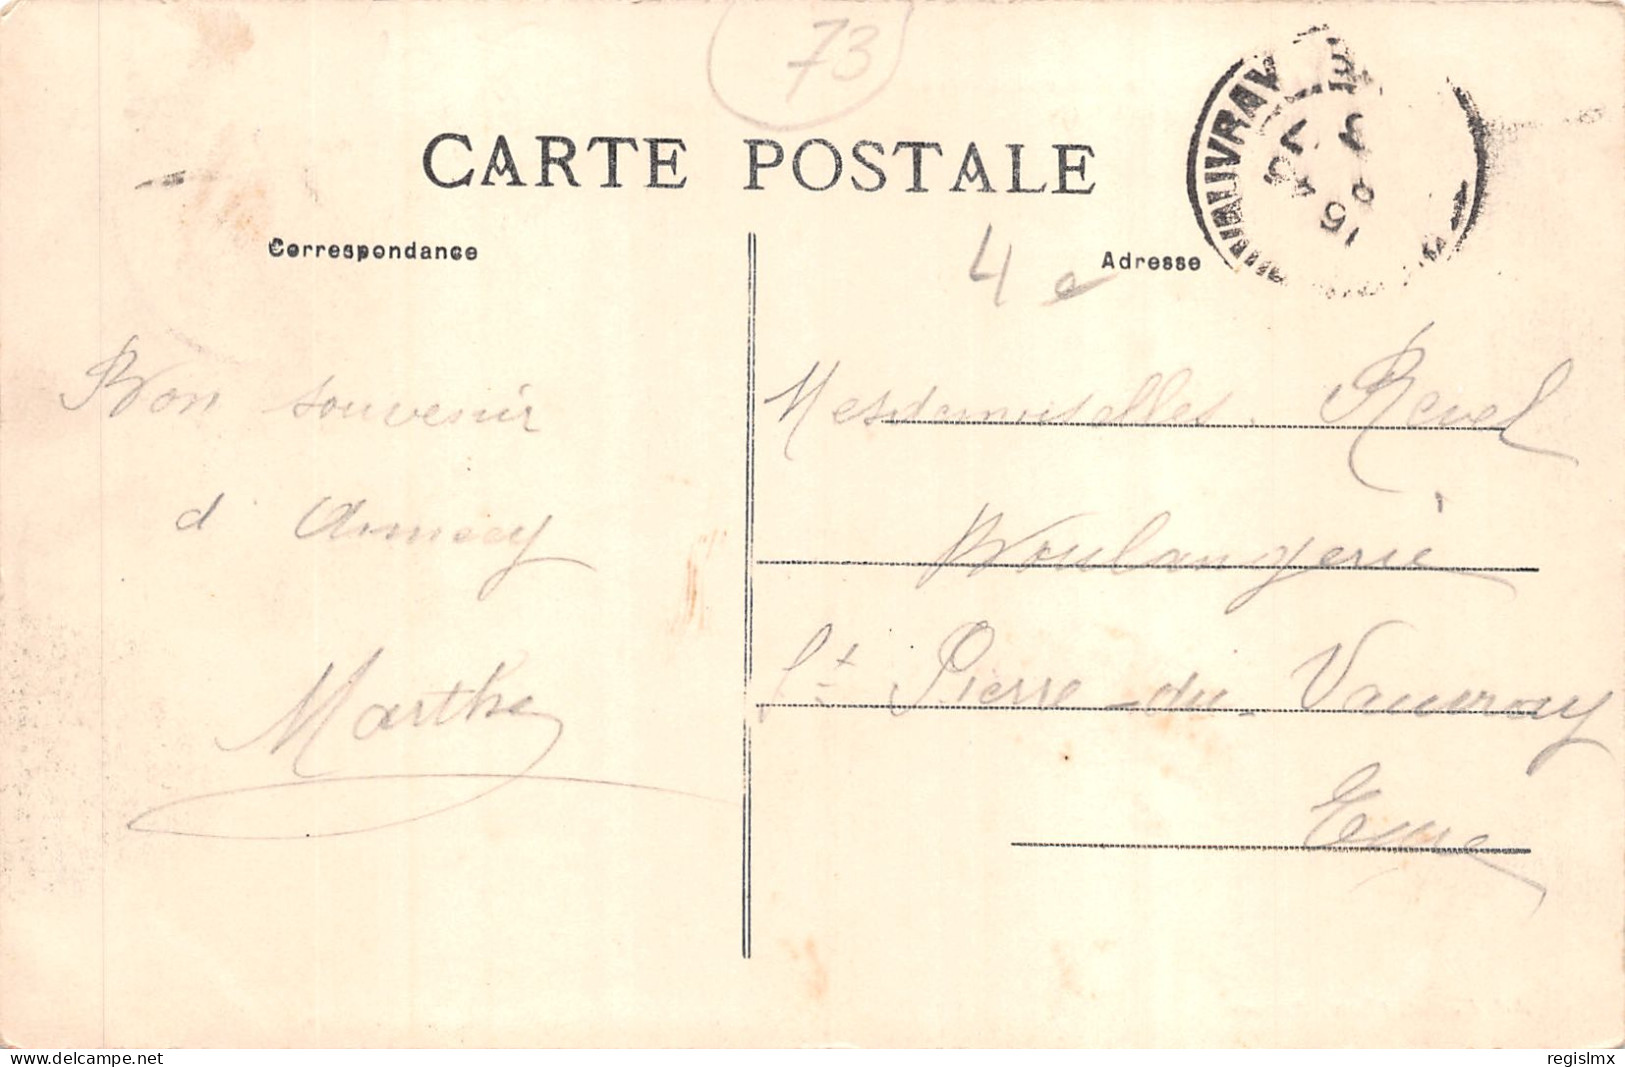 73
CARTE POSTALE
Correspondance
Adresse
4 e
Bon souvenir
d'Annecy
Marthe
Mesdemoiselles Revel
Boulangerie
St Pierre-du-Vauvray
Eure
delcampe.net
regislmx